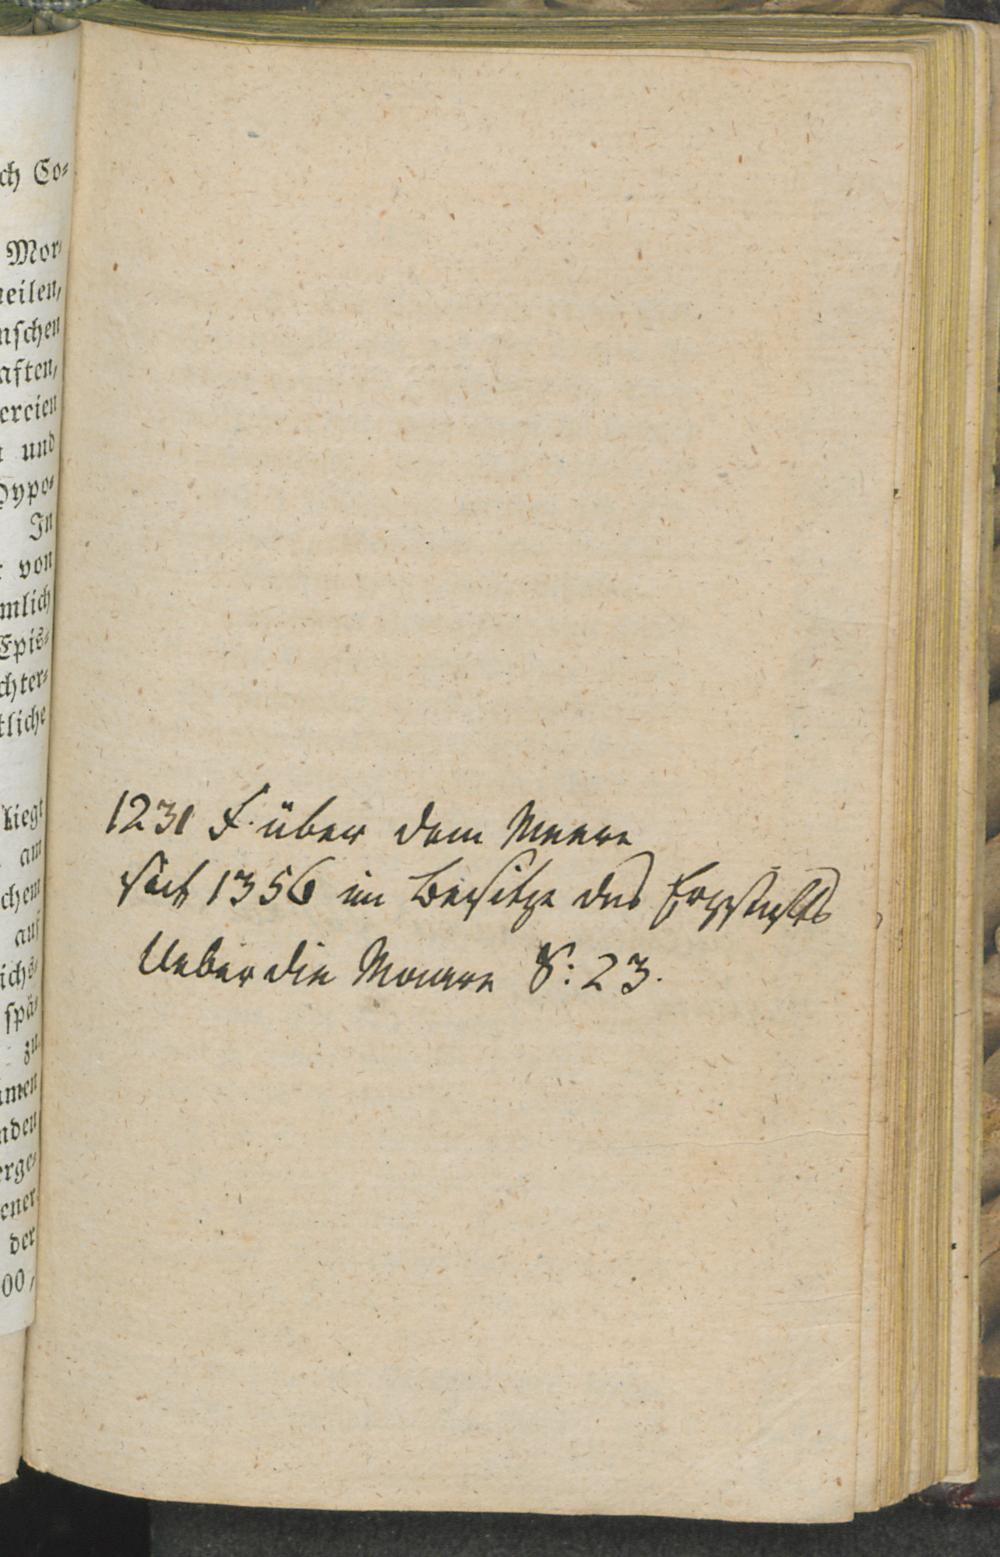 ch Co⸗
Mor⸗
heilen,
nschen
aften,
ereien
und
Hypo⸗
In
von
mlich
Epis⸗
chter⸗
tliche
liegt
am
chem
auf
ichs⸗
spä⸗
zu
amen
nden
erge⸗
ener
der
00,
1231 F. über dem Meere
seit 1356 im Besitze des Erzstifts
Ueber die Mauern S: 23.